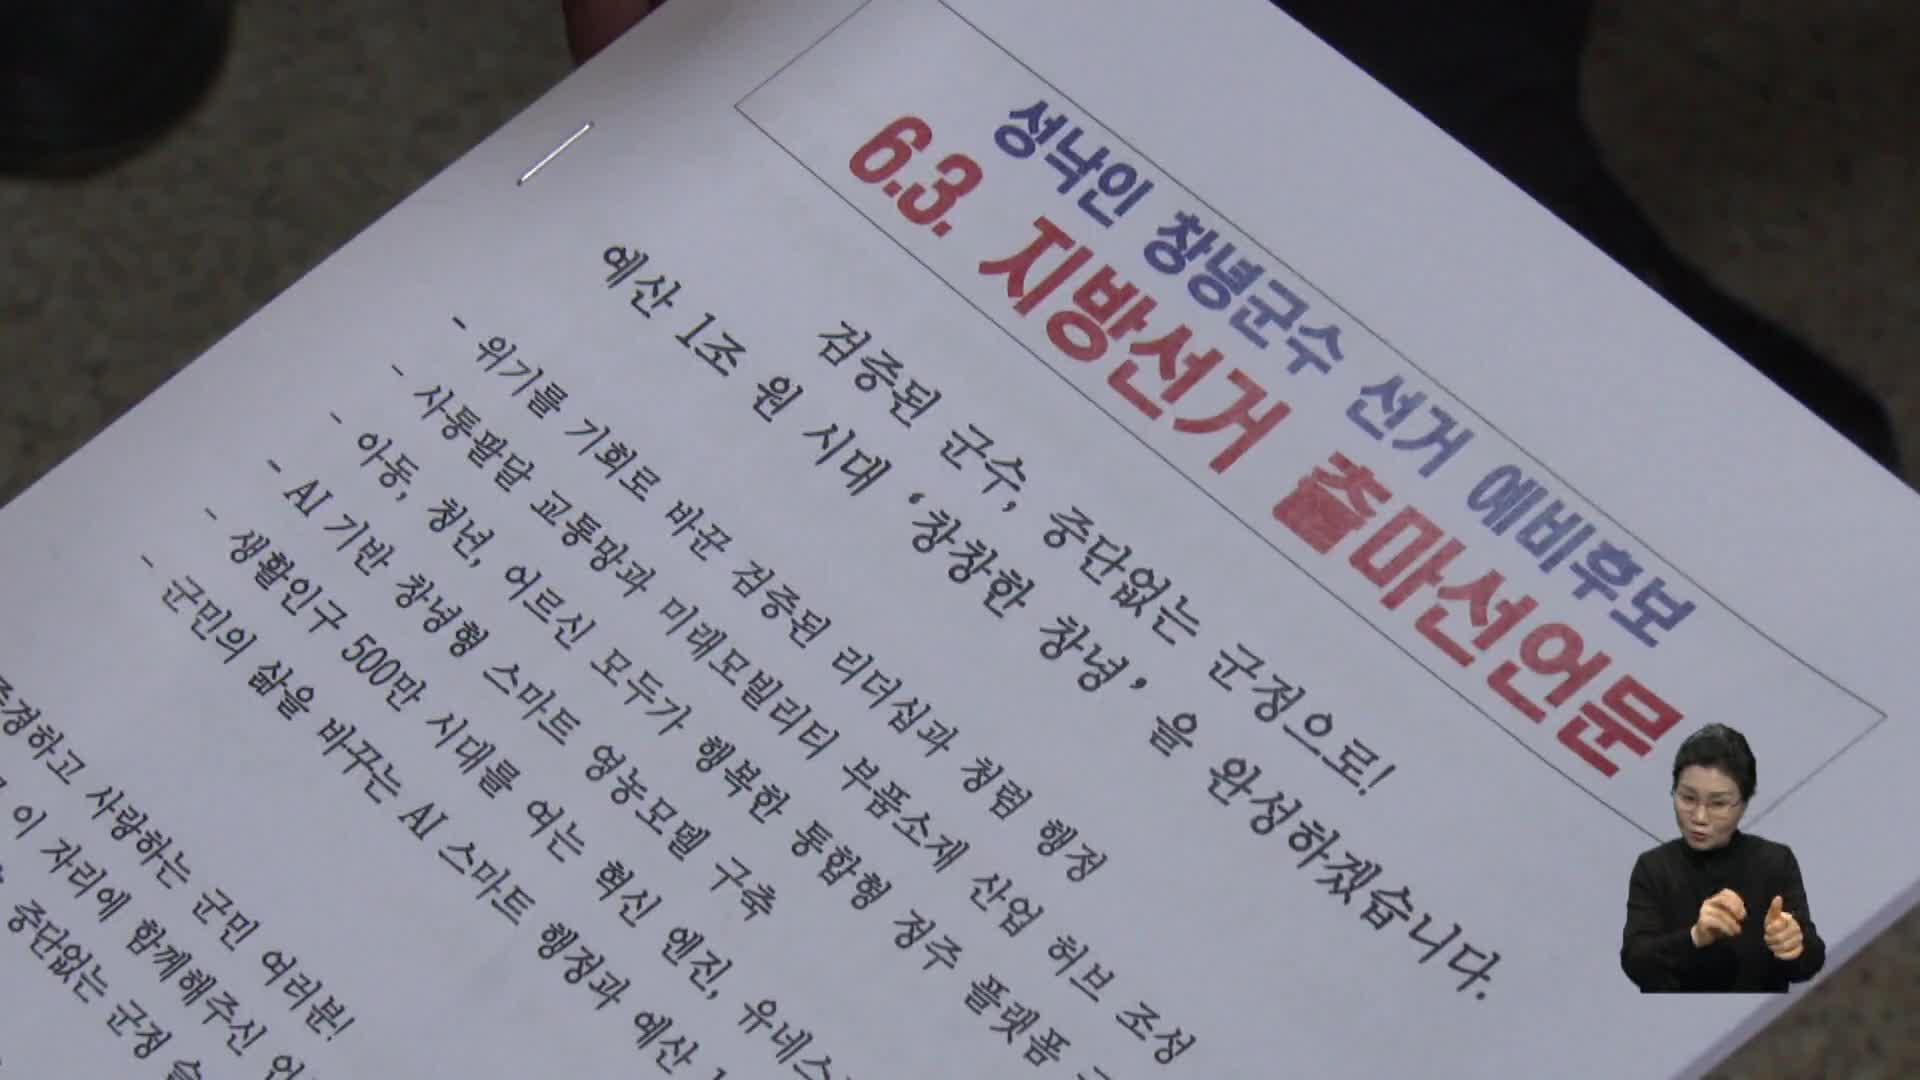 성낙인 창녕군수 선거 예비후보
6.3. 지방선거 출마선언문
검증된 군수, 중단없는 군정으로!
예산 1조 원 시대 ‘창창한 창녕’을 완성하겠습니다.
- 위기를 기회로 바꾼 검증된 리더십과 청렴 행정
- 사통팔달 교통망과 미래모빌리티 부품소재 산업 허브 조성
- 아동, 청년, 어르신 모두가 행복한 통합형 정주 플랫폼
- AI 기반 창녕형 스마트 영농모델 구축
- 생활인구 500만 시대를 여는 혁신 엔진, 유네스
- 군민의 삶을 바꾸는 AI 스마트 행정과 예산
존경하고 사랑하는 군민 여러분!
이 자리에 함께해주신
중단없는 군정